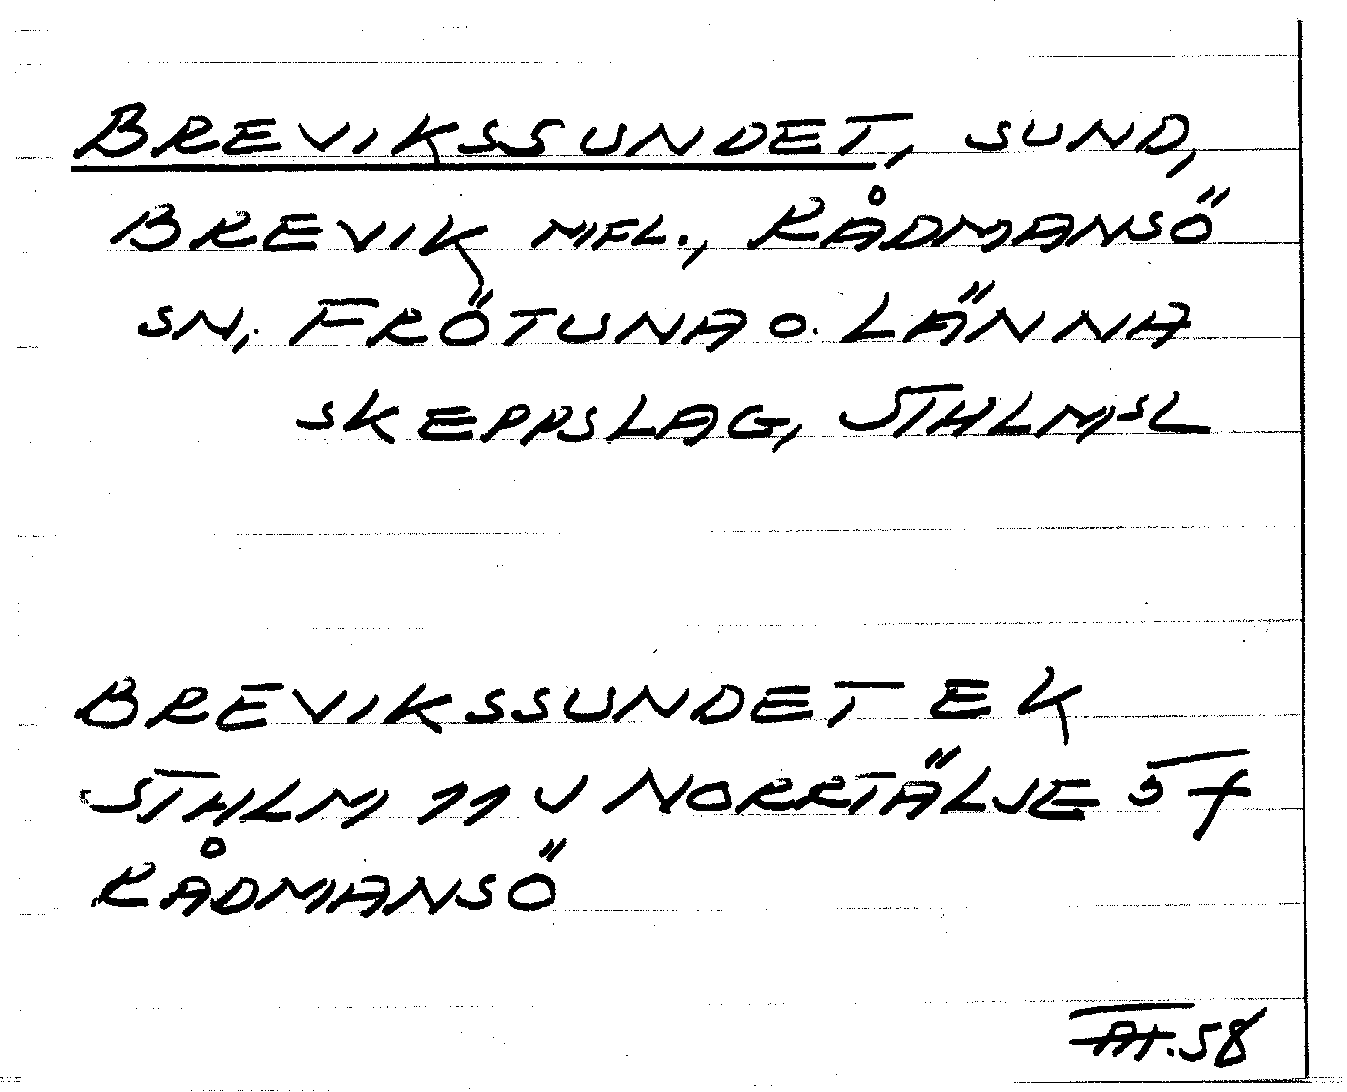 BREVIKSSUNDET, SUND,
BREVIK MFL., RÅDMANSÖ
SN, FRÖTUNA O. LÄNNA
SKEPPSLAG, STHLMSL
BREVIKSSUNDET EK
STHLM 11 V NORRTÄLJE 57
RÅDMANSÖ
58